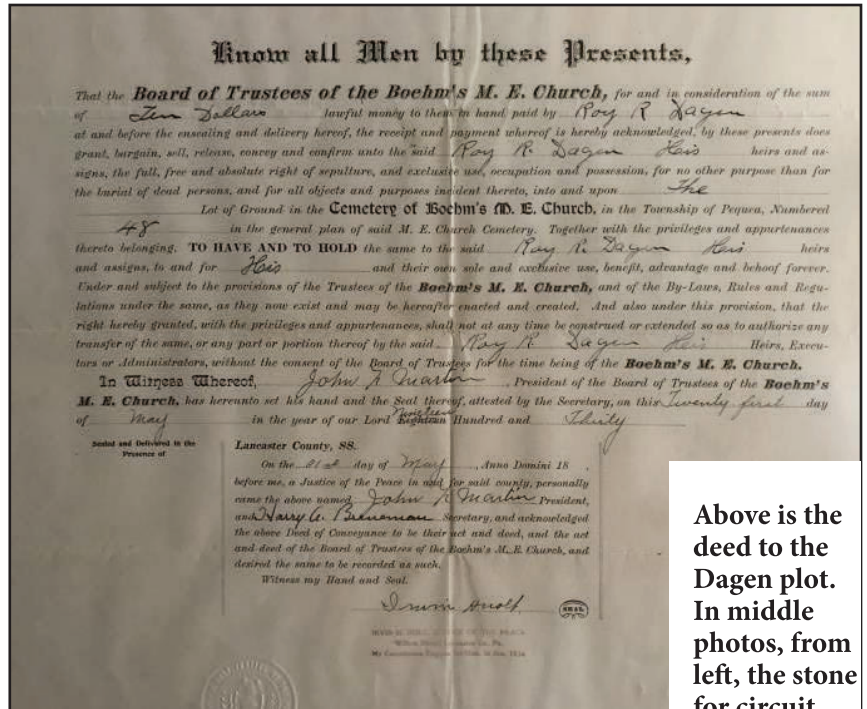 Know all Men by these Presents,
That the Board of Trustees of the Boehm's M. E. Church, for and in consideration of the sum
of Ten Dollars lawful money to them in hand paid by Roy R Dagen
at and before the ensealing and delivery hereof, the receipt and payment whereof is hereby acknowledged, by these presents does
grant, bargain, sell, release, convey and confirm unto the said Roy R. Dagen His heirs and as-
signs, the full, free and absolute right of sepulture, and exclusive use, occupation and possession, for no other purpose than for
the burial of dead persons, and for all objects and purposes incident thereto, into and upon The
Lot of Ground in the Cemetery of Boehm's M. E. Church, in the Township of Pequea, Numbered
48 in the general plan of said M. E. Church Cemetery. Together with the privileges and appurtenances
thereto belonging. TO HAVE AND TO HOLD the same to the said Roy R. Dagen His heirs
and assigns, to and for His and their own sole and exclusive use, benefit, advantage and behoof forever.
Under and subject to the provisions of the Trustees of the Boehm's M. E. Church, and of the By-Laws, Rules and Regu-
lations under the same, as they now exist and may be hereafter enacted and created. And also under this provision, that the
right hereby granted, with the privileges and appurtenances, shall not at any time be construed or extended so as to authorize any
transfer of the same, or any part or portion thereof by the said Roy R. Dagen His Heirs, Execu-
tors or Administrators, without the consent of the Board of Trustees for the time being of the Boehm's M. E. Church.
In Witness Whereof, John R Martin, President of the Board of Trustees of the Boehm's
M. E. Church, has hereunto set his hand and the Seal thereof, attested by the Secretary, on this Twenty first day
of May in the year of our Lord Nineteen Eighteen Hundred and Thirty
Sealed and Delivered in the
Presence of
Lancaster County, SS.
On the 21st day of May, Anno Domini 18 ,
before me, a Justice of the Peace in and for said county, personally
came the above named John R Martin President,
and Harry A. Breneman Secretary, and acknowledged
the above Deed of Conveyance to be their act and deed, and the act
and deed of the Board of Trustees of the Boehm's M. E. Church, and
desired the same to be recorded as such.
Witness my Hand and Seal.
Irwin
SEAL
My Commission Expires
Above is the
deed to the
Dagen plot.
In middle
photos, from
left, the stone
for circuit